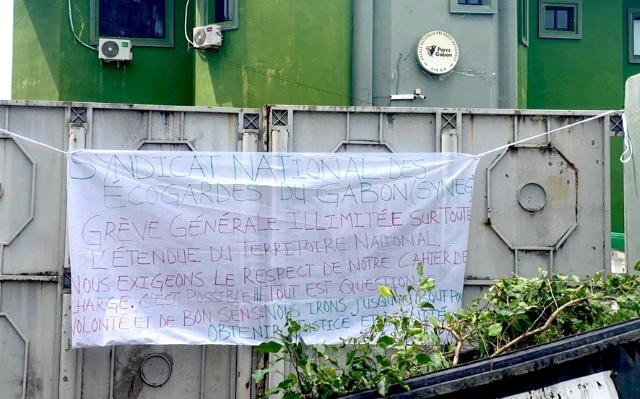 Parcs
Gabon
SYNDICAT NATIONAL DES
ÉCOGARDES DU GABON (SYNEG
GRÈVE GÉNÉRALE ILLIMITÉE SUR TOUTE
L'ÉTENDUE DU TERRITOIRE NATIONAL.
NOUS EXIGEONS LE RESPECT DE NOTRE CAHIER DE
CHARGE. C'EST POSSIBLE!!! TOUT EST QUESTION
VOLONTÉ ET DE BON SENS. NOUS IRONS JUSQU'AU BOUT
OBTENIR JUSTICE